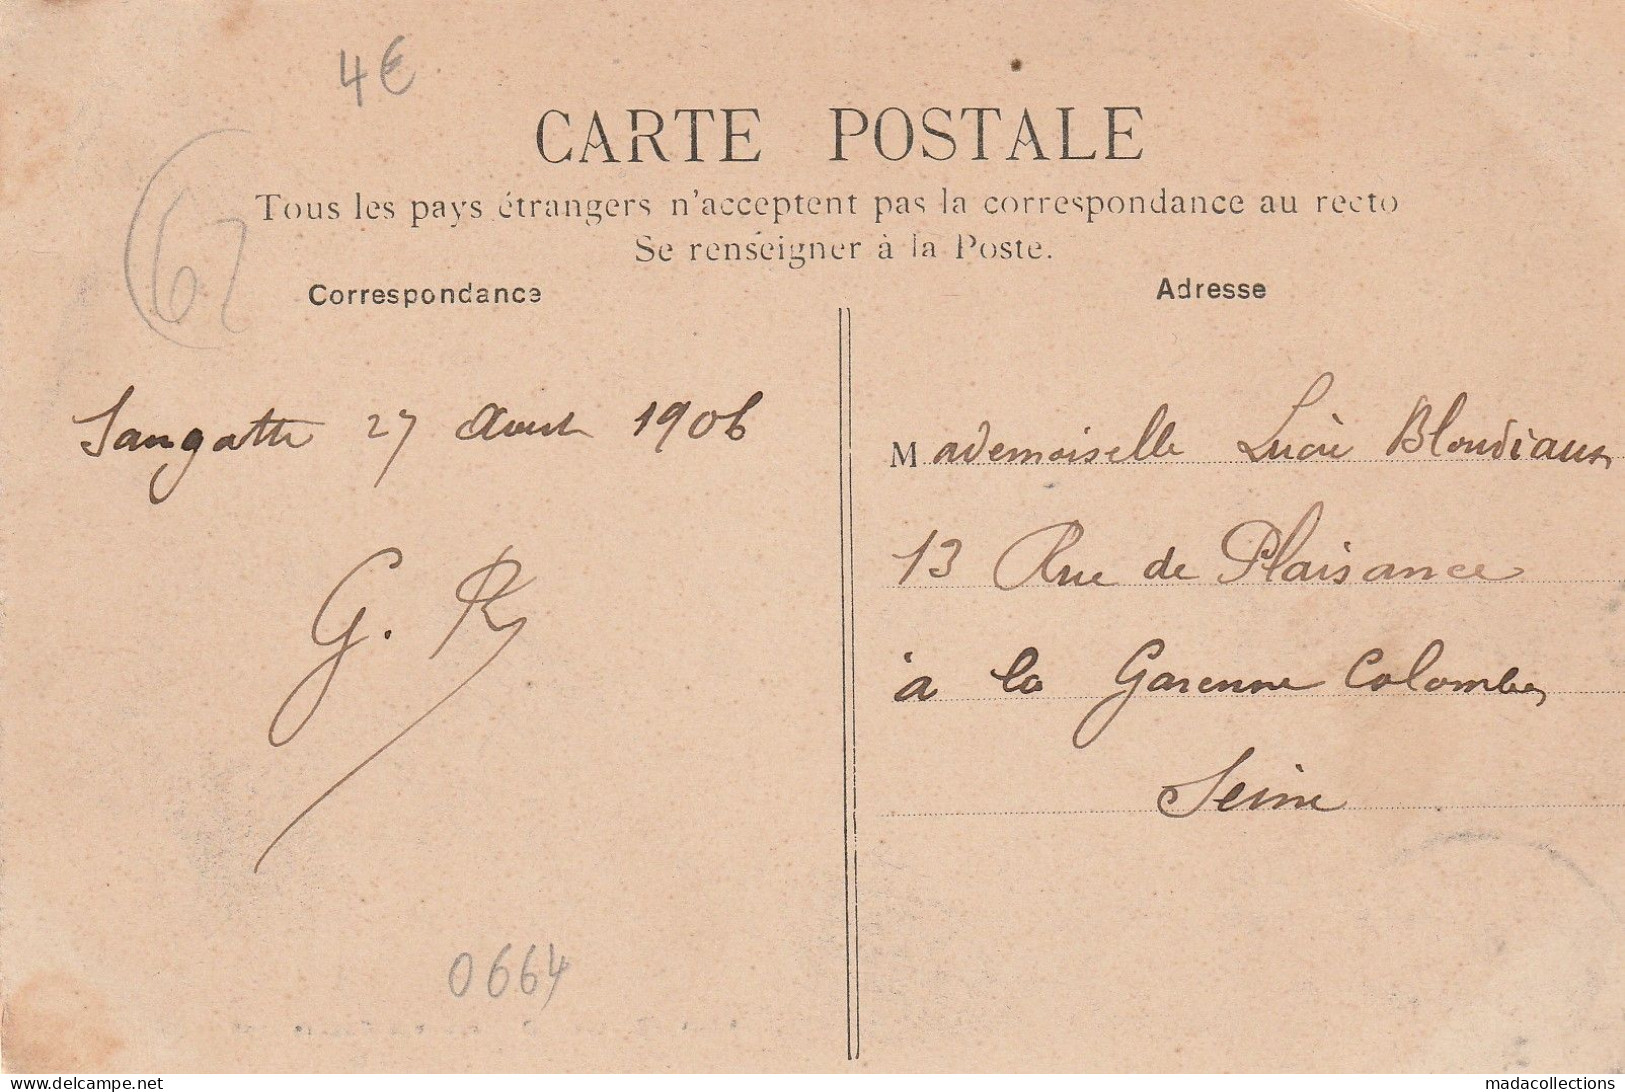 4€
CARTE POSTALE
Tous les pays étrangers n'acceptent pas la correspondance au recto
Se renseigner à la Poste.
62
Correspondance
Adresse
Sangatte 27 Aout 1906
G. R
Mademoiselle Lucie Blondiaux
13 Rue de Plaisance
à la Garenne Colombes
Seine
0664
delcampe.net
madacollections